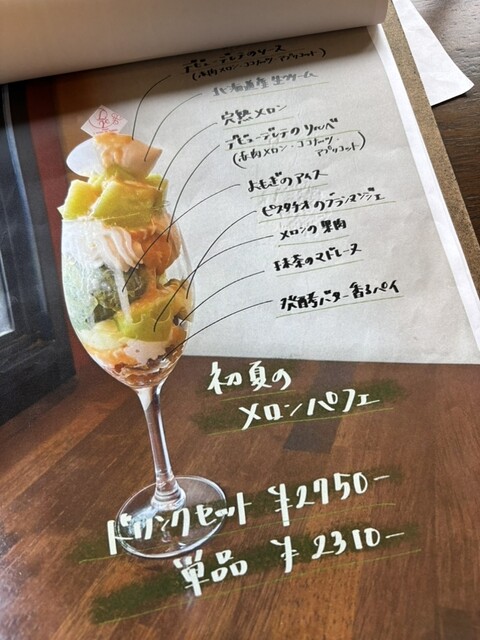 デビューデレテのソース
(赤肉メロン・ココナッツ・アプリコット)
北海道産生クリーム
完熟メロン
デビューデレテのソルベ
(赤肉メロン・ココナッツ・
アプリコット)
よもぎのアイス
ピスタチオのブランマンジェ
メロンの果肉
抹茶のマドレーヌ
発酵バター香るパイ
初夏の
メロンパフェ
ドリンクセット ¥2750-
単品 ¥2310-